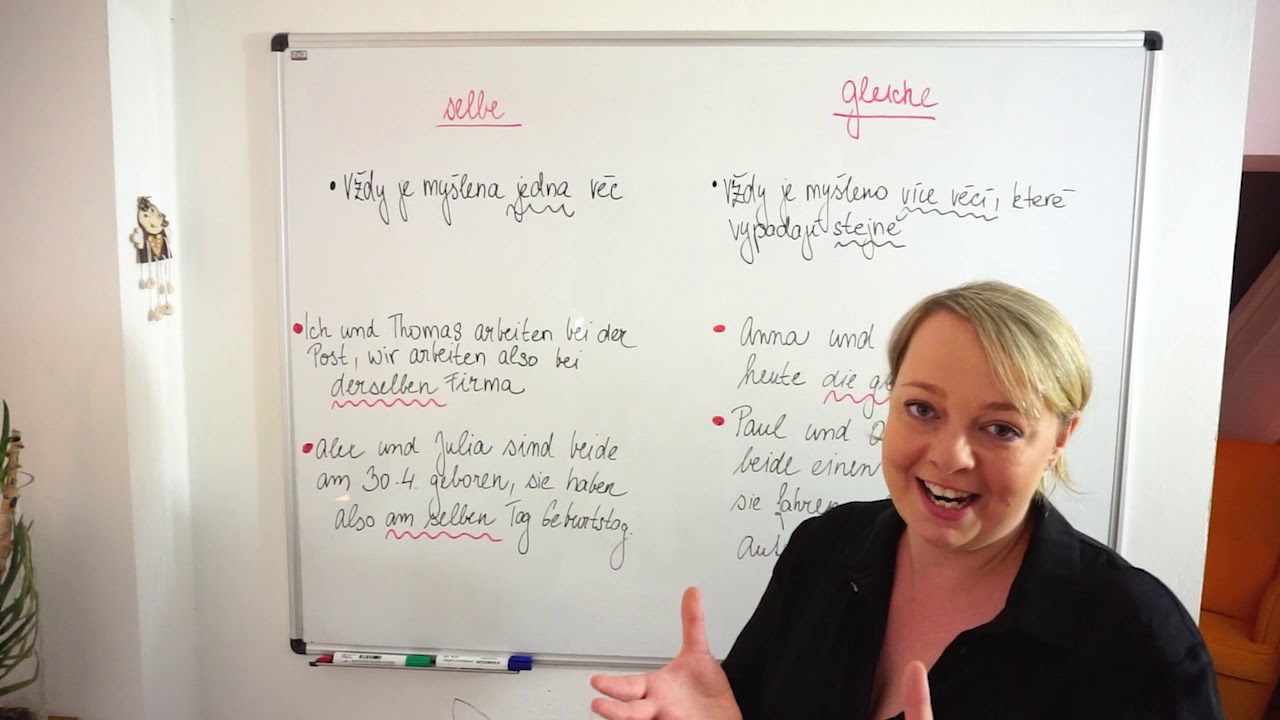 selbe
• Vždy je myšlena jedna věc
• Ich und Thomas arbeiten bei der
Post, wir arbeiten also bei
derselben Firma
• Alex und Julia sind beide
am 30.4. geboren, sie haben
also am selben Tag Geburtstag.
gleiche
• Vždy je myšleno více věcí, které
vypadají stejně
• Anna und
heute die
• Paul und
beide einen
sie fahren